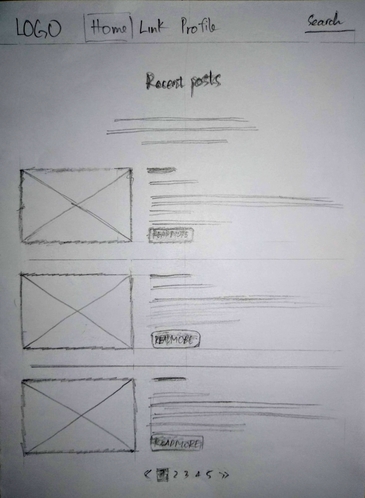 LOGO Home Link Profile Search
Recent posts
READ MORE
READ MORE
READ MORE
< 1 2 3 4 5 >>